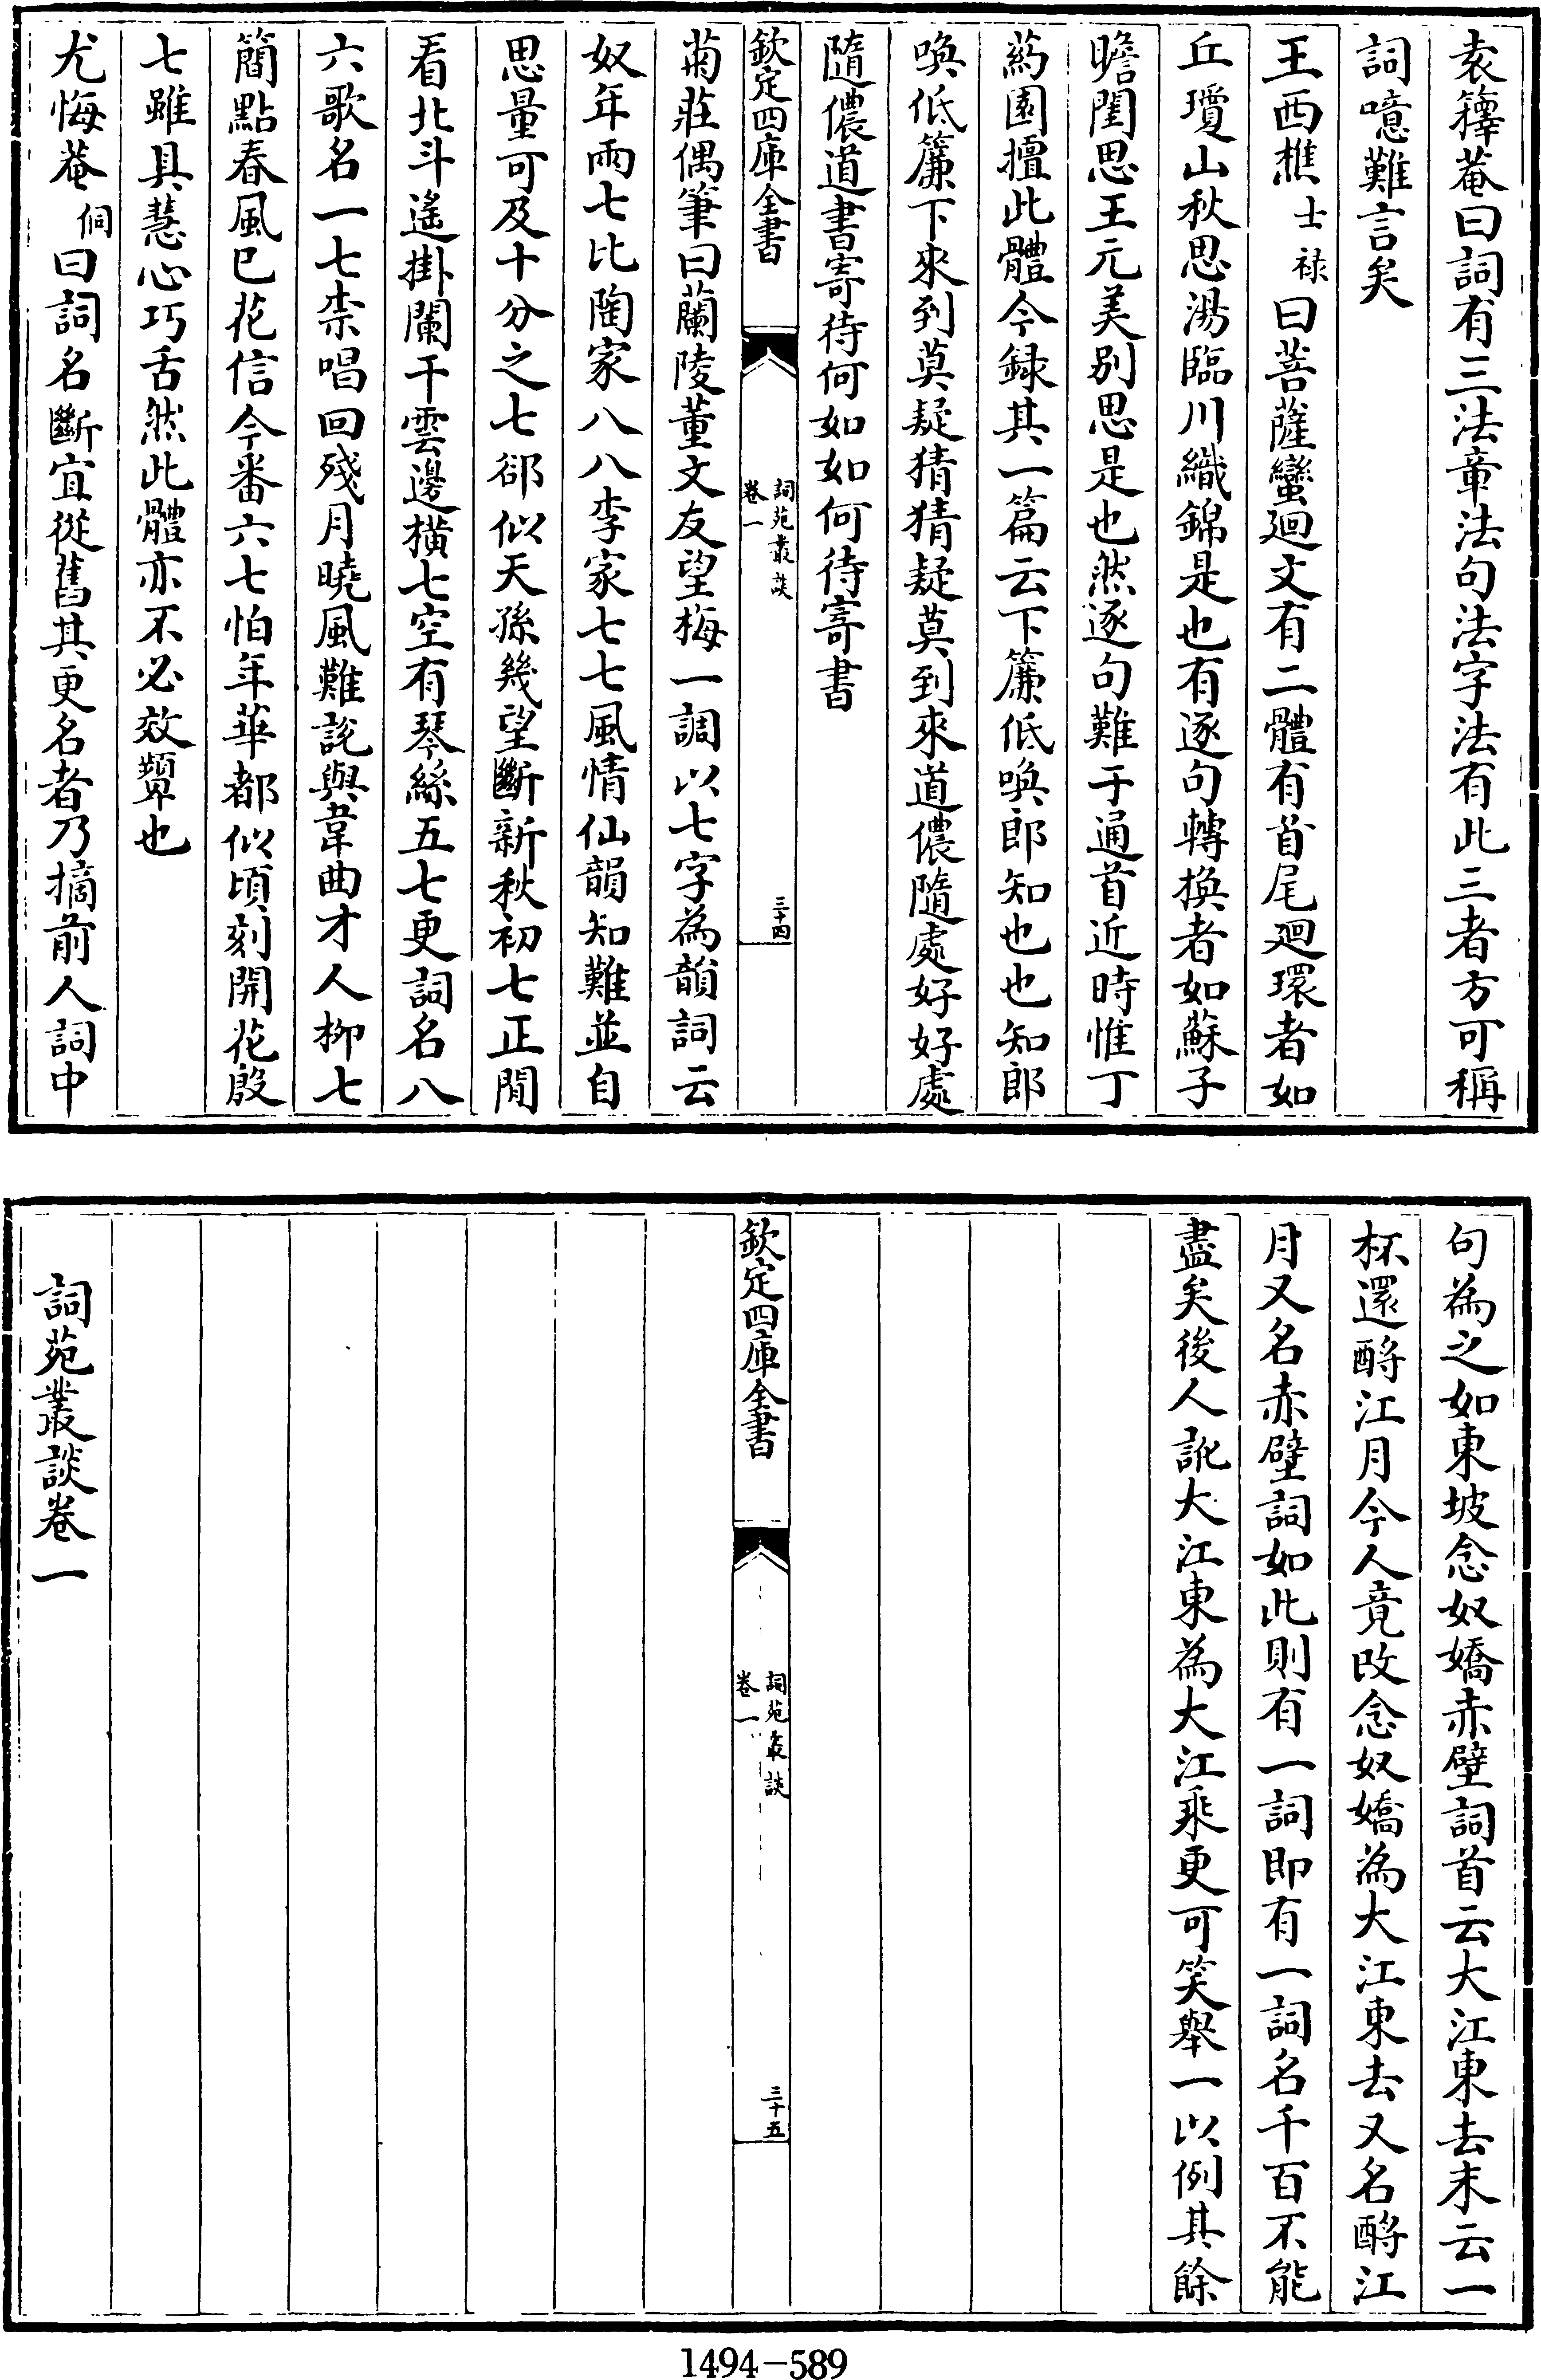 袁籜菴曰詞有三法章法句法字法有此三者方可稱
詞噫難言矣
王西樵士禄曰菩薩蠻廻文有二體有首尾廻環者如
丘瓊山秋思湯臨川織錦是也有逐句轉換者如蘇子
瞻閨思王元美别思是也然逐句難于通首近時惟丁
葯園擅此體今録其一篇云下簾低喚郎知也也知郎
喚低簾下來到莫疑猜猜疑莫到來道儂隨處好好處
隨儂道書寄待何如如何待寄書
欽定四庫全書
詞苑叢談
卷一
三十四
菊莊偶筆曰蘭陵董文友望梅一調以七字為韻詞云
奴年兩七比陶家八八李家七七風情仙韻知難並自
思量可及十分之七郤似天孫幾望斷新秋初七正閒
看北斗遙掛闌干雲邊橫七空有琴絲五七更詞名八
六歌名一七柰唱回殘月曉風難說與韋曲才人柳七
簡點春風巳花信今番六七怕年華都似頃刻開花殷
七雖具慧心巧舌然此體亦不必效顰也
尤悔菴侗曰詞名斷宜從舊其更名者乃摘前人詞中
句為之如東坡念奴嬌赤壁詞首云大江東去末云一
杯還酹江月今人竟改念奴嬌為大江東去又名酹江
月又名赤壁詞如此則有一詞即有一詞名千百不能
盡矣後人訛大江東為大江乘更可笑舉一以例其餘
欽定四庫全書
詞苑叢談
卷一
三十五
詞苑叢談卷一
1494-589